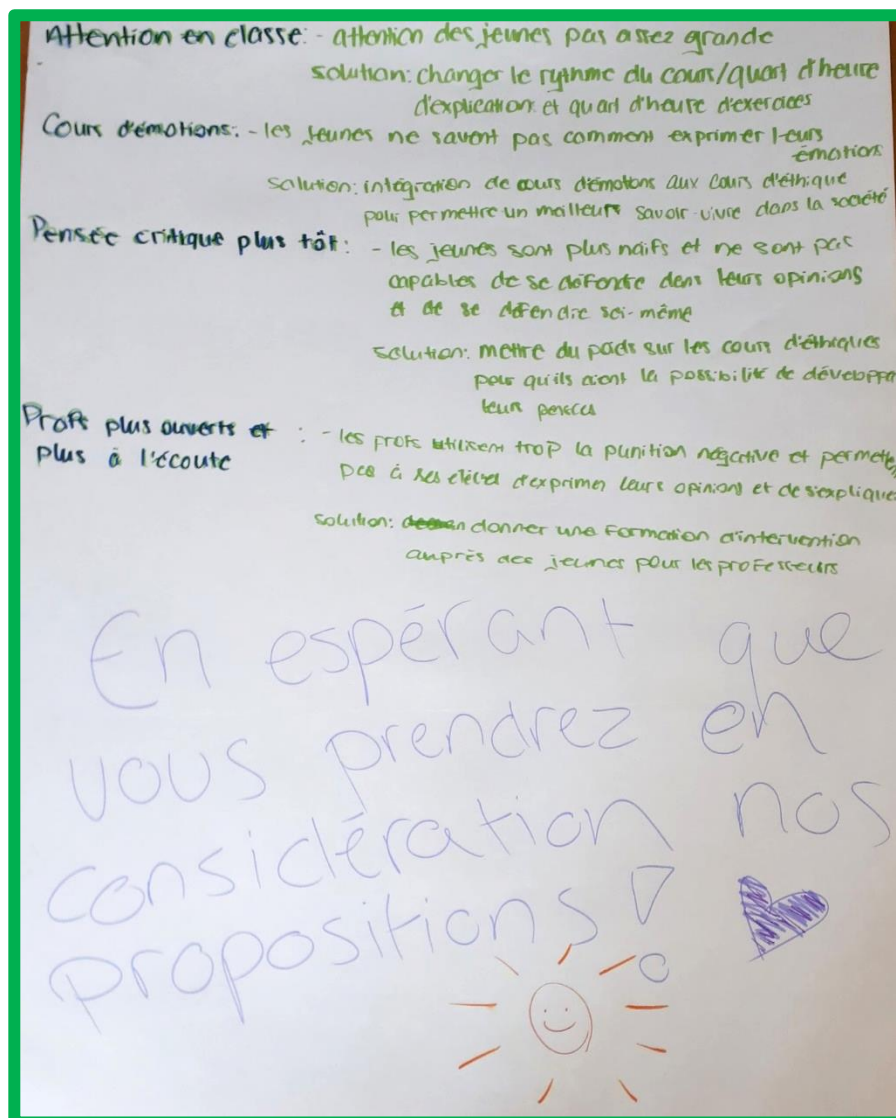 Attention en classe: - attention des jeunes pas assez grande
solution: changer le rythme du cours/quart d'heure
d'explication et quart d'heure d'exercices
Cours d'émotions: - les jeunes ne savent pas comment exprimer leurs
émotions
solution: intégration de cours d'émotions aux cours d'éthique
pour permettre un meilleurs savoir-vivre dans la société
Pensée critique plus tôt: - les jeunes sont plus naifs et ne sont pas
capables de se défendre dans leurs opinions
et de se défendre soi-même
solution: mettre du poids sur les cours d'éthiques
pour qu'ils aient la possibilité de développe
leur pensées
Profs plus ouverts et : - les profs utilisent trop la punition négative et permette
plus à l'écoute
pas à ses élèves d'exprimer leurs opinions et de s'explique
solution: donner une formation d'intervention
auprès des jeunes pour les professeurs
En espérant que
vous prendrez en
considération nos
propositions!